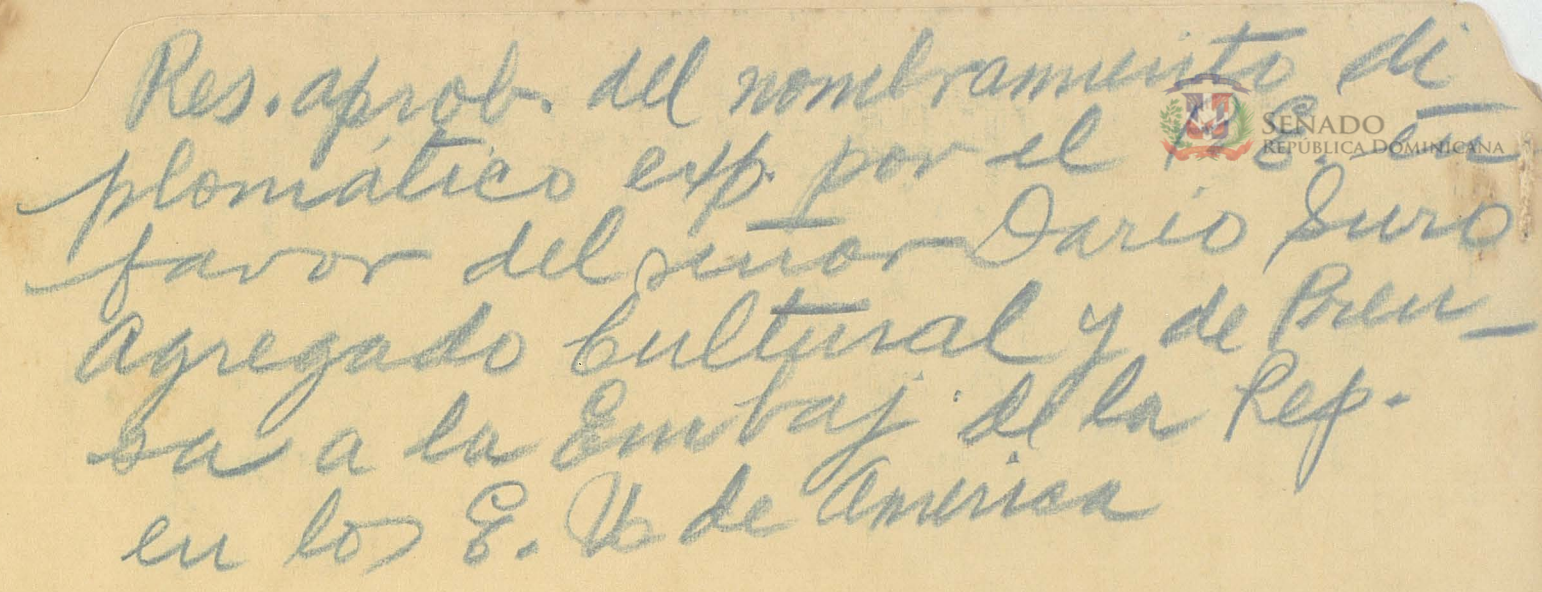 Res. aprob. del nombramiento di
plomático exp. por el P. E. en
favor del señor Dario Suro
Agregado Cultural y de Pren-
sa a la Embaj. de la Rep.
en los E. U. de America
SENADO
REPÚBLICA DOMINICANA